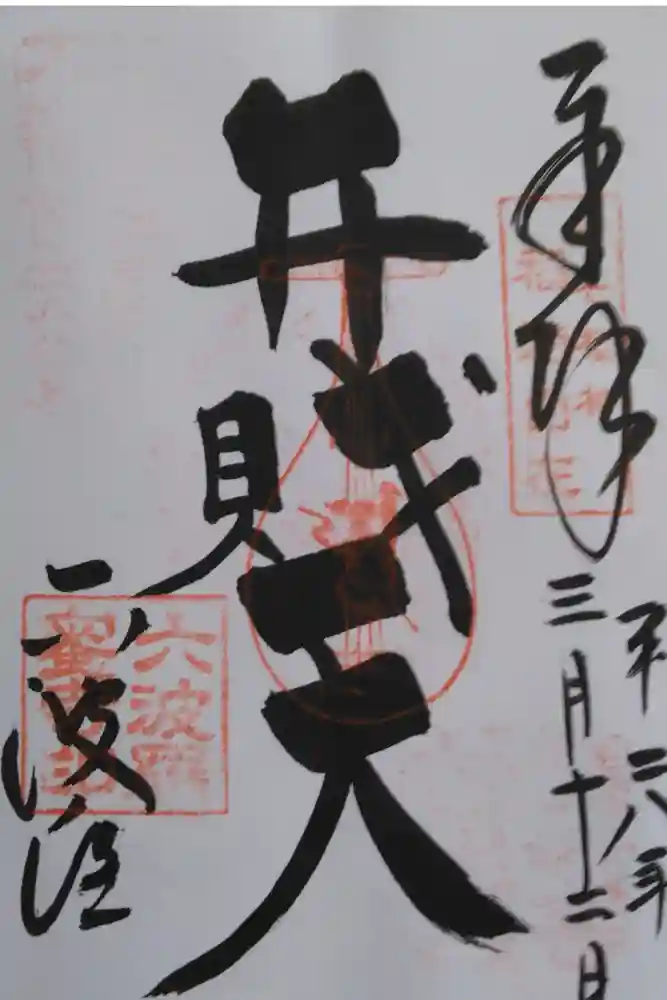 奉拝
平二八年
三月十二日
弁財天
六波羅
六波羅
蜜寺印